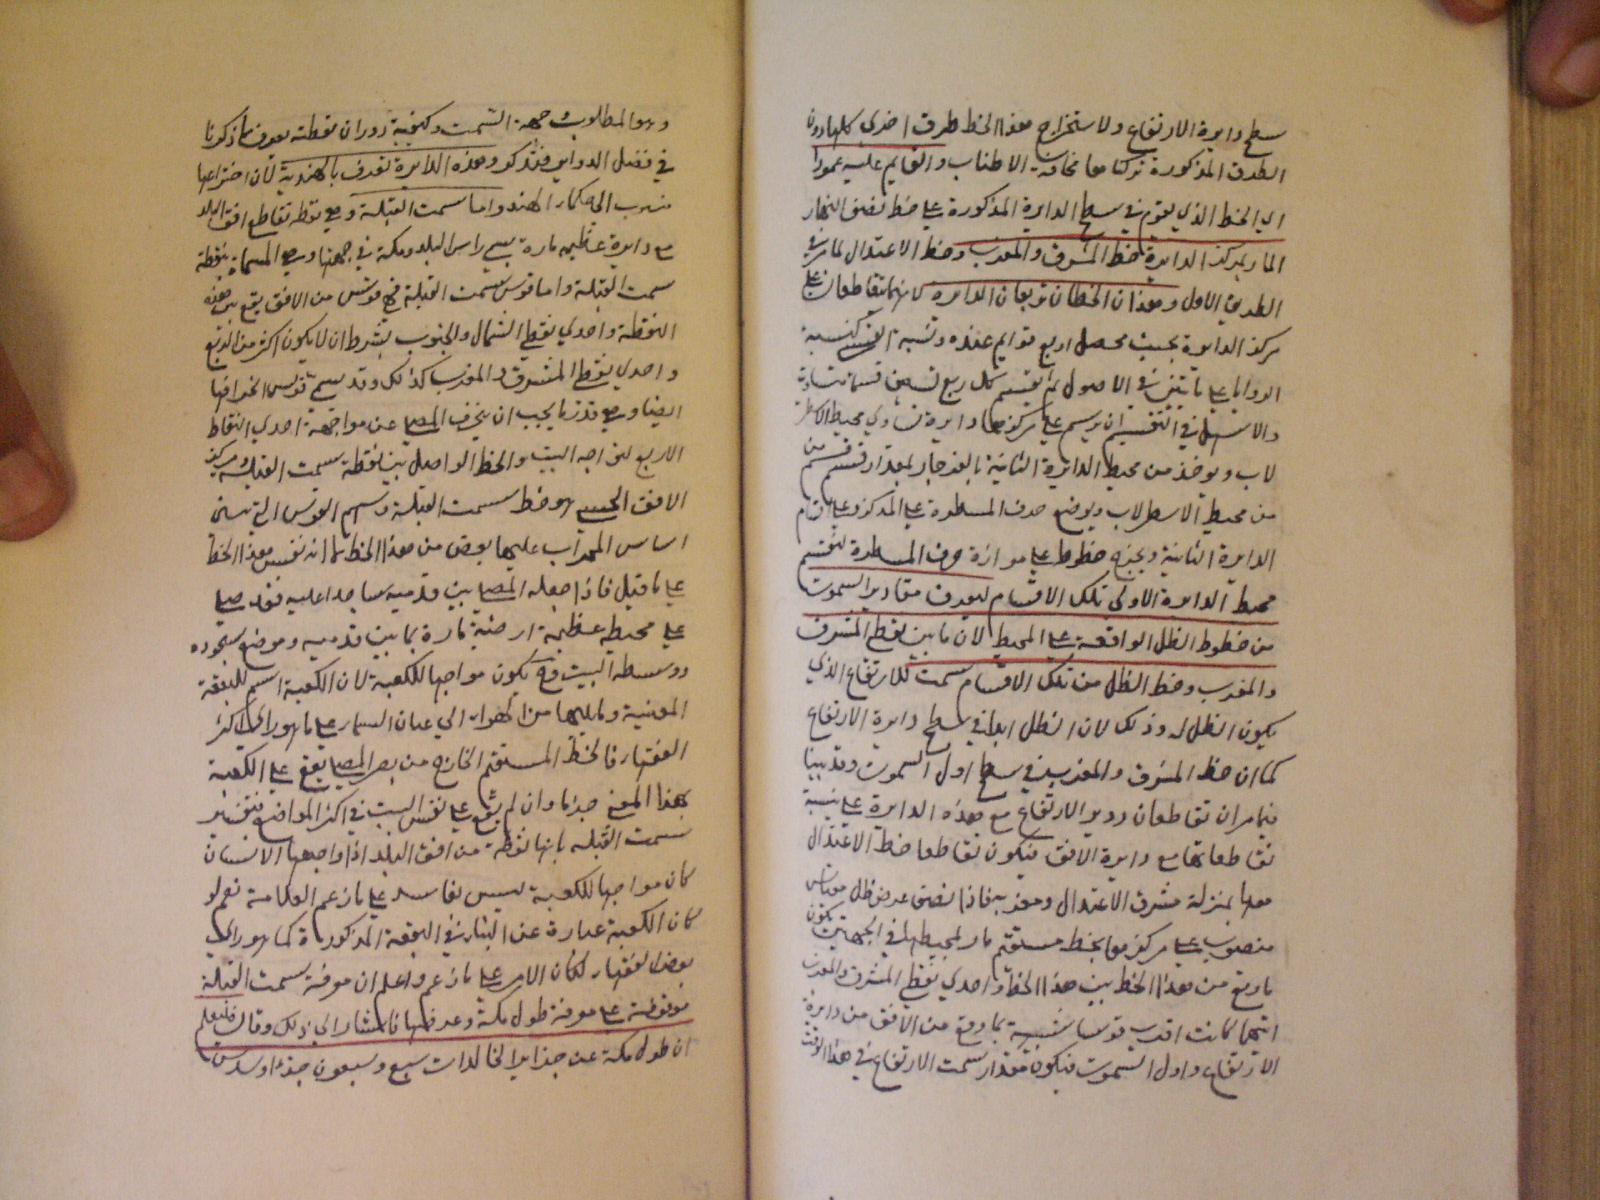 سطح دايرة الارتفاع ولاستخراج هذا الخط طرق اخرى كلها دون
الطرق المذكورة تركناها مخافة الاطناب والقايم عليه عمودا
اي الخط الذي يقوم في سطح الدايرة المذكورة على خط نصف النهار
المار بمركز الدايرة خط المشرق والمغرب وخط الاعتدال لما مر في
الطريق الاول وهذان الخطان يربعان الدايرة لانهما يتقاطعان على
مركز الدايرة بحيث يحصل اربع قوايم عنده ونسبة القسى كنسبة
الزوايا على ما تبين في الاصول ثم يقسم كل ربع تسعين قسما متساوية
والاسهل في التقسيم ان يرسم على مركزها دايرة تساوي محيط الاسطر
لاب ويوخذ من محيط الدايرة الثانية بالفرجار بمقدار قسم قسم من
من محيط الاسطرلاب ويوضع حرف المسطرة على المركز وعلى اقسام
الدايرة الثانية ويخرج خطوط على موازاة حرف المسطرة لتقسم
محيط الدايرة الاولى تلك الاقسام ليعرف مقادير السموت
من خطوط الظل الواقعة على المحيط لان ما بين نقطة المشرق
والمغرب وخط الظل من تلك الاقسام سمت للارتفاع الذي
يكون الظل له وذلك لان الظل ابدا في سطح دايرة الارتفاع
كما ان خط المشرق والمغرب في سطح اول السموت وقد بينا
فيما مر ان تقاطعات دواير الارتفاع مع هذه الدايرة على نسبة
تقاطعاتها مع دايرة الافق فيكون تقاطعا خط الاعتدال
معها بمنزلة مشرق الاعتدال ومغربه فاذا نصف عرض ظل مقياس
منصوب على مركزها بخط مستقيم مار لمحيطها في الجهتين يكون
ما وقع من هذا الخط بين هذا الخط واحدي نقطتي المشرق والمغرب
ايتهما كانت اقرب قوسا شبيهة بما وقع من الافق من دايرة
الارتفاع واول السموت فيكون مقدار سمت الارتفاع في هذا الوقت
وهو المطلوب جهة السمت وكيفية دوران نقطته يعرف مما ذكرنا
في فصل الدواير فتذكر وهذه الدايرة تعرف بالهندية لان اختراعها
منسوب الى حكماء الهند واما سمت القبلة وهي نقطة تقاطع افق البلد
مع دايرة عظيمة مارة بسمتي راس البلد ومكة في جهتها وهي المسماة بنقطة
سمت القبلة واما قوس سمت القبلة فهي قوس من الافق يقع بين هذه
النقطة واحدي نقطتي الشمال والجنوب بشرط ان لا يكون اكثر من الربع
واحدي نقطتي المشرق والمغرب كذلك وقد يسمى قوس انحرافها
ايضا وهي قدر ما يجب ان ينحرف المصلي عن مواجهة احدي النقاط
الاربع ليواجه البيت والخط الواصل بين نقطة سمت القبلة ومركز
الافق الحسي هو خط سمت القبلة وسهم القوس التي يبنى
اساس المحراب عليها بعض من هذا الخط لا انه نفس هذا الخط
على ما قيل فاذا جعله المصلي بين قدميه ساجدا عليه فقد صلى
على محيط عظيمة ارضية مارة بما بين قدميه وموضع سجوده
ووسط البيت فح يكون مواجها للكعبة لان الكعبة اسم للبقعة
المعينة ولما يليها من الهواء الى عنان السماء على ما هو راي اكثر
الفقهاء فالخط المستقيم الخارج من بصر المصلي يقع على الكعبة
بهذا المعنى جزما وان لم يقع على نفس البيت في اكثر المواضع فتفسير
سمت القبلة بانها نقطة من افق البلد اذا واجهها الانسان
كان مواجها للكعبة ليس بفاسد على ما زعم العلامة نعم لو
كان الكعبة عبارة عن البناء في البقعة المذكورة كما هو راي
بعض الفقهاء لكان الامر على ما زعم واعلم ان معرفة سمت القبلة
موقوفة على معرفة طول مكة وعرضها فاشار الى ذلك وقال فليعلم
ان طول مكة عن جزاير الخالدات سبع وسبعون جزءا وسدس